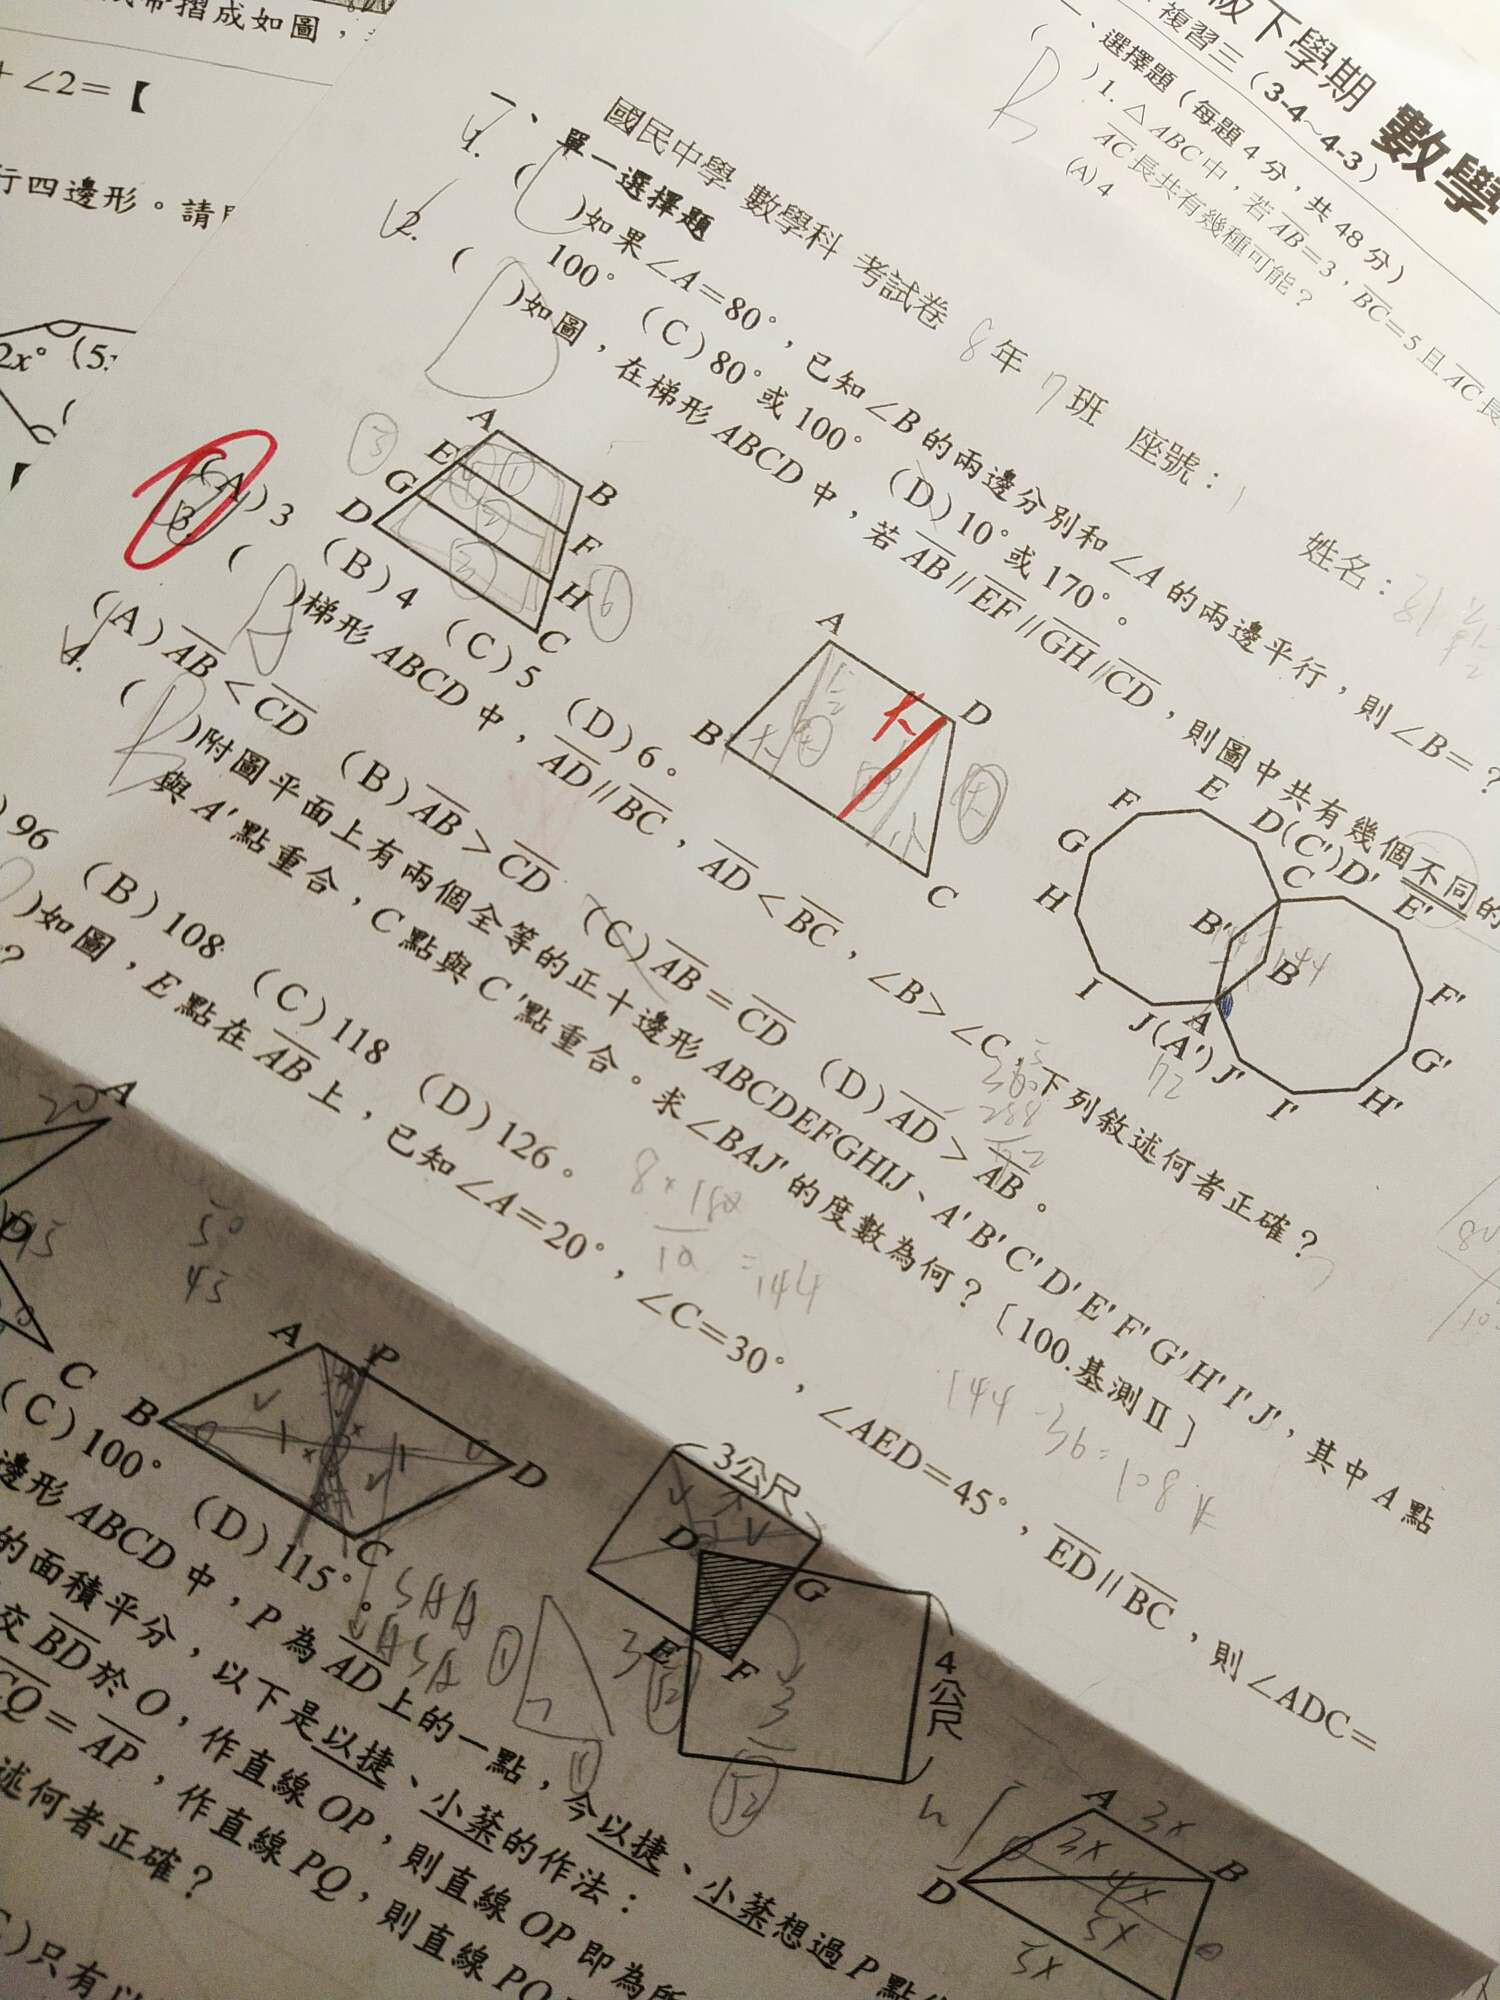 級下學期 數學
複習三(3-4~4-3)
一、選擇題(每題4分,共48分)
( )1. △ABC中,若AB=3,BC=5且AC長
AC長共有幾種可能?
(A) 4
摺成如圖,
+ ∠2=【
行四邊形。請
2x° (5
國民中學 數學科 考試卷 8年 7班 座號:1 姓名:
一、單一選擇題
1. ( )如果∠A=80°,已知∠B的兩邊分別和∠A的兩邊平行,則∠B=?
100° (C)80°或100° (D)10°或170°。
2. ( D )如圖,在梯形ABCD中,若AB//EF//GH//CD,則圖中共有幾個不同的
A
E
B
G
F
D
H
C
(A)3 (B)4 (C)5 (D)6。
3. ( )梯形ABCD中,AD//BC,AD<BC,∠B>∠C,下列敘述何者正確?
A
D
B
C
(A)AB<CD (B)AB>CD (C)AB=CD (D)AD>AB。
4. ( B )附圖平面上有兩個全等的正十邊形ABCDEFGHIJ、A'B'C'D'E'F'G'H'I'J',其中A點
與A'點重合,C點與C'點重合。求∠BAJ'的度數為何?〔100.基測Ⅱ〕
E
F
D(C')D'
G
C
E'
H
B'
B
F'
I
A
J(A')
J'
G'
I'
H'
)96 (B)108 (C)118 (D)126。
8×180
10
=144
144-36=108
72
)如圖,E點在AB上,已知∠A=20°,∠C=30°,∠AED=45°,ED//BC,則∠ADC=
?
20
A
D
C
50
45
(C)100° (D)115°。
A
P
B
D
C
SAA
ASA
邊形ABCD中,P為AD上的一點,今以捷、小蓁想過P點
的面積平分,以下是以捷、小蓁的作法:
交BD於O,作直線OP,則直線OP即為所
CQ=AP,作直線PQ,則直線PQ
述何者正確?
)只有以
3公尺
D
G
E
F
4公尺
3
√2
A
3x
B
3x
4x
D
5x
5x